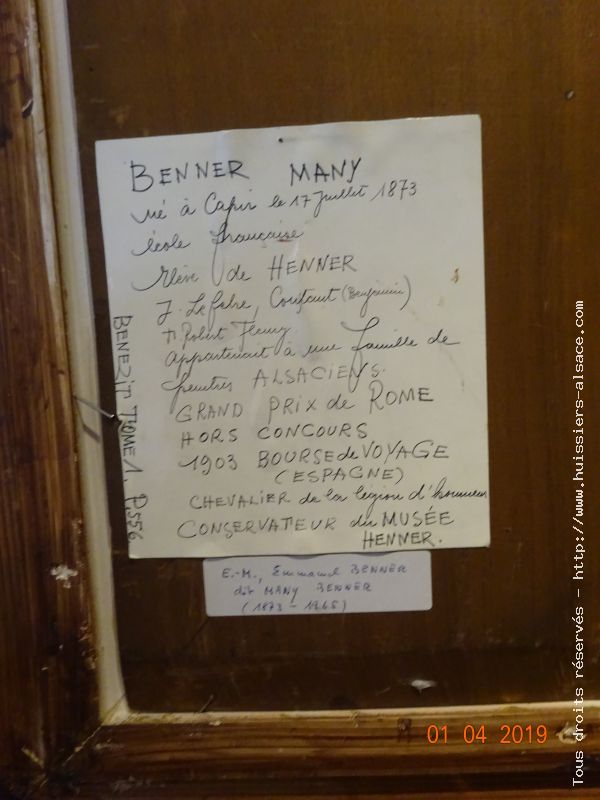 BENNER MANY
né à Capri le 17 Juillet 1873
école française
élève de HENNER
J. Lefebre, Constant (Benjamin)
T. Robert Fleury
appartenait à une famille de
peintres ALSACIENS.
GRAND PRIX de ROME
HORS CONCOURS
1903 BOURSE de VOYAGE
(ESPAGNE)
CHEVALIER de la légion d'honneur
CONSERVATEUR du MUSÉE
HENNER.
BENEZIT TOME 1. P.556
E.-M., Emmanuel BENNER
dit MANY BENNER
(1873 - 1965)
01 04 2019
Tous droits réservés - http://www.huissiers-alsace.com